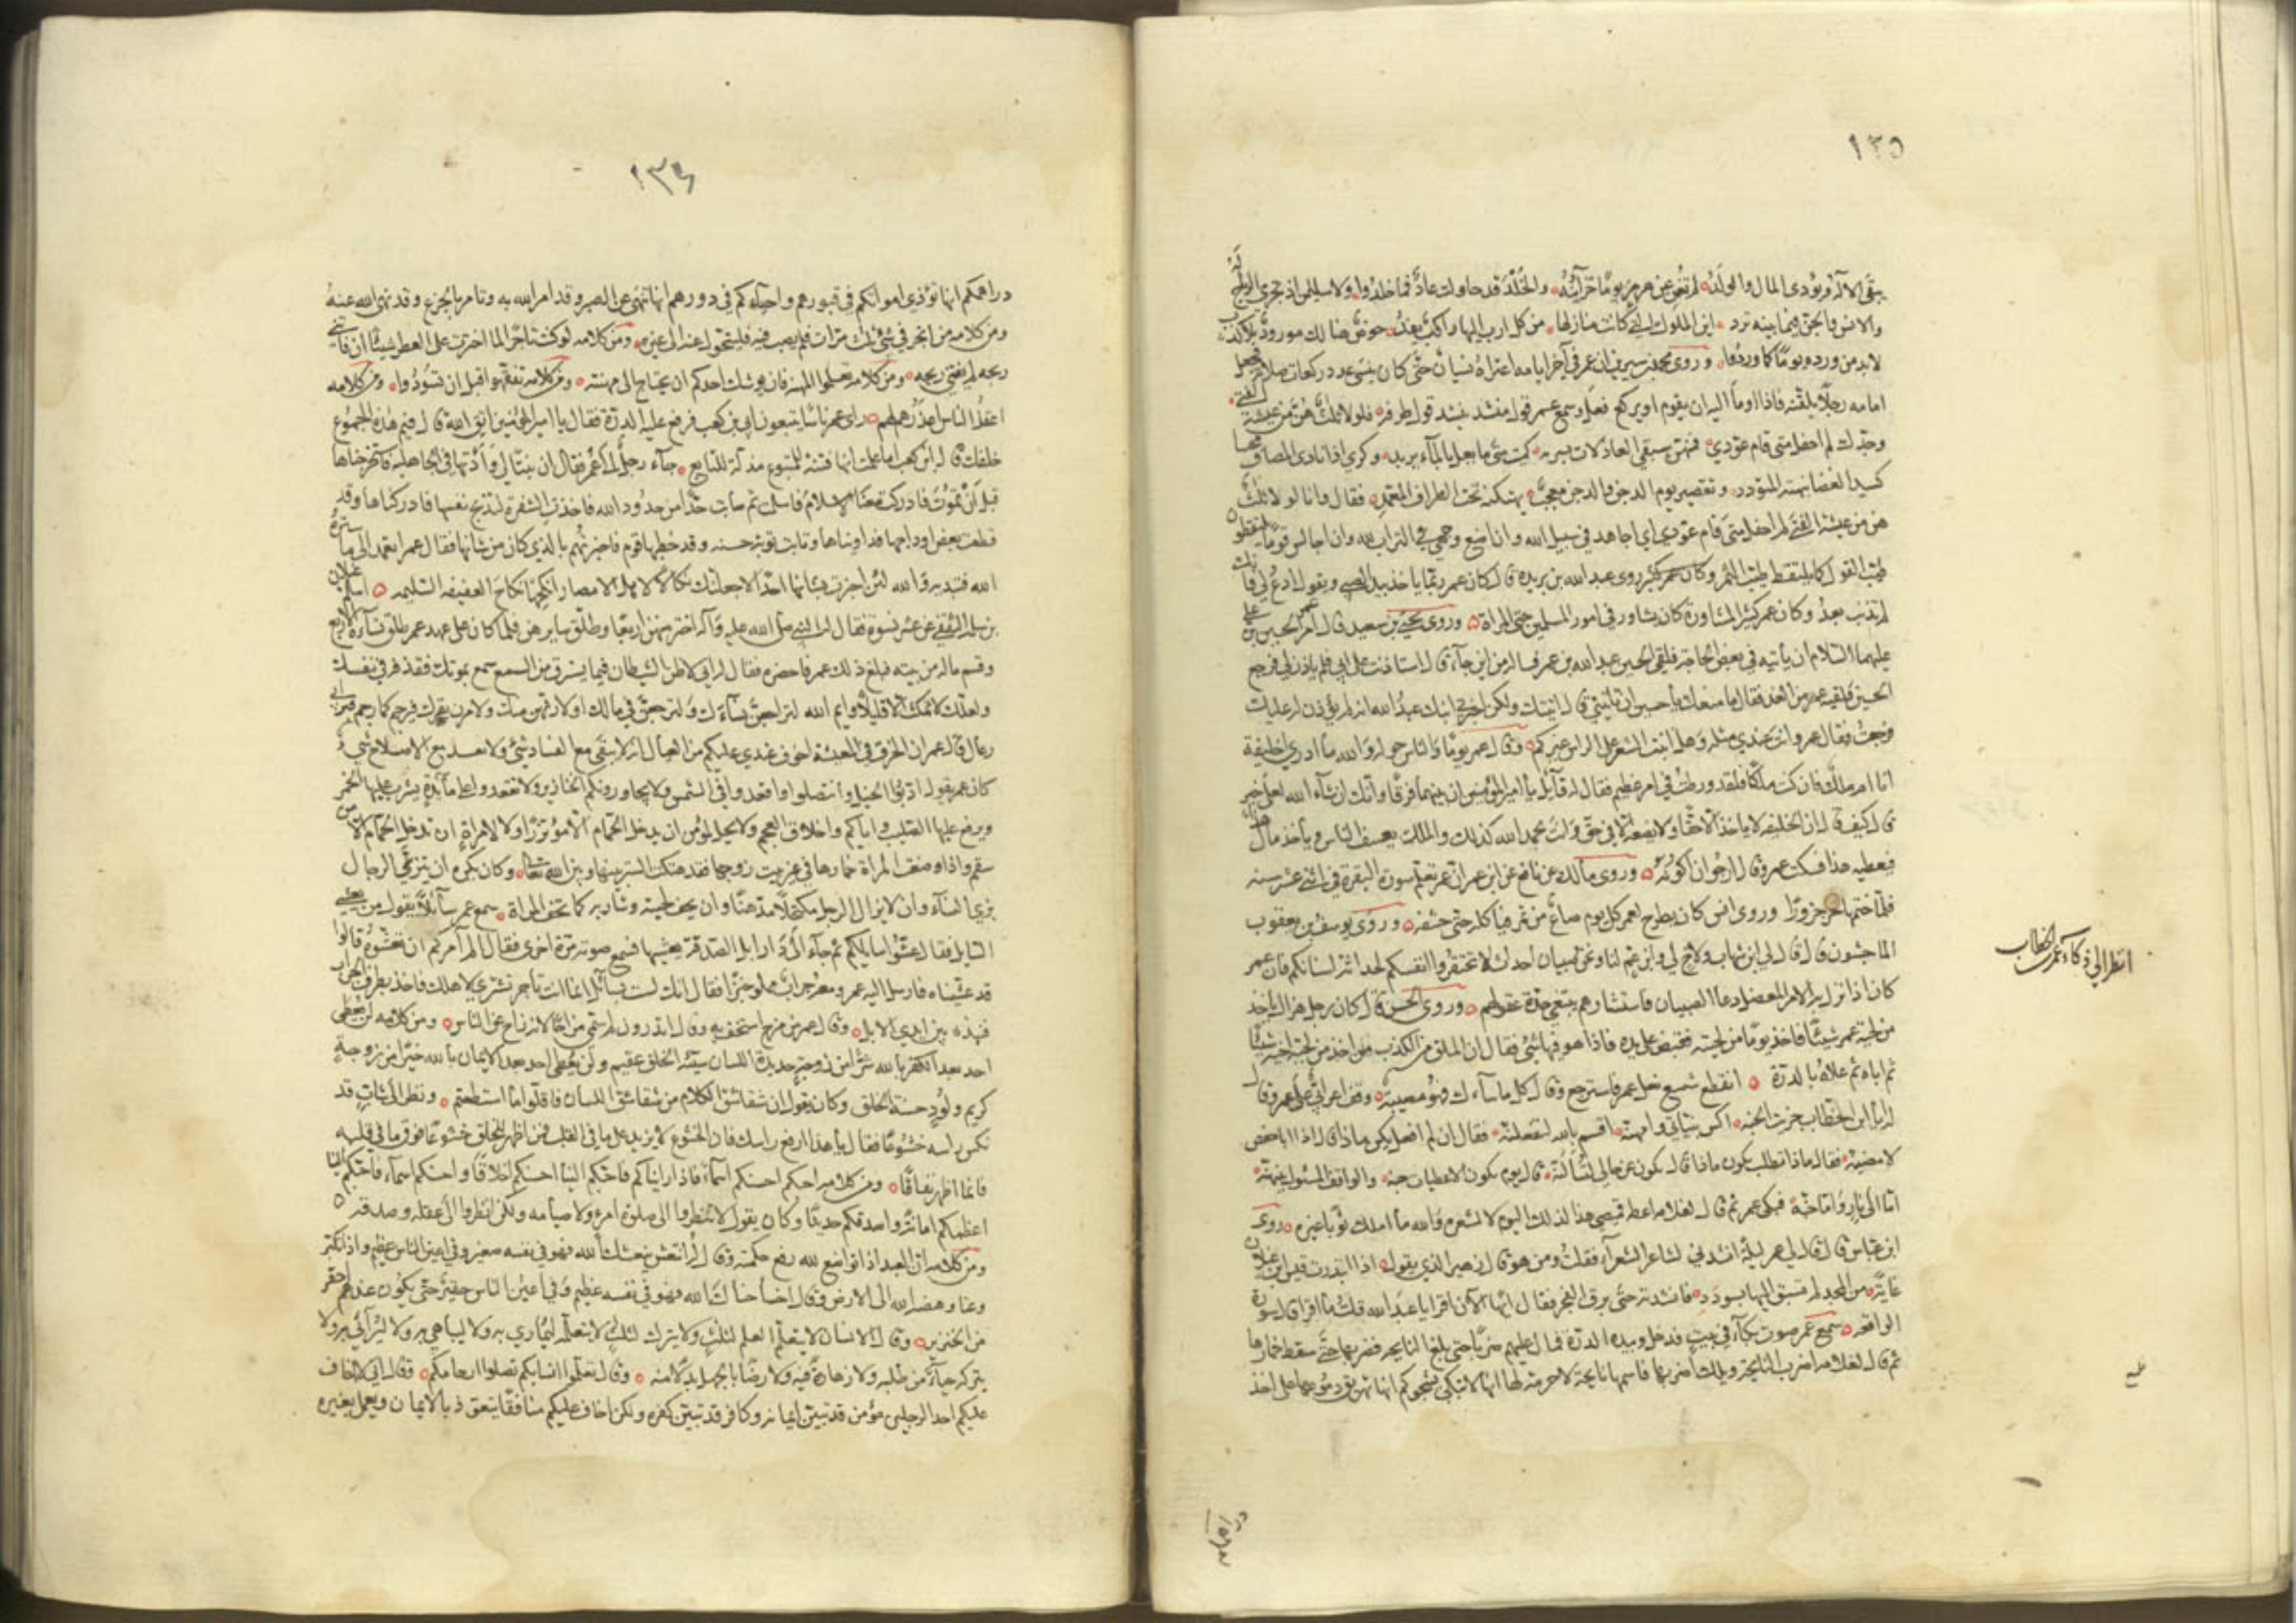 ١٣٥
يبقى الاله ويودي المال والولد لم تغن عن هرمز يوما خزآئنه والخلد قد حاولت عاد فما خلدوا ولا سليمان اذ تجري الرياح له
والانس والجن فيما بينه ترد اين الملوك التي كانت منازلها من كل اوب اليها راكب يفد حوض هنالك مورود بلا كذب
لابد من ورده يوما كما وردوا وروى محمد بن سيرين ان عمر في آخر ايامه اعتراه نسيان حتى كان ينسى عدد ركعات صلاته فجعل
امامه رجلا يلقنه فاذا اومأ اليه ان يقوم او يركع فعل وسمع عمر قول منشد ينشد قول طرفه فلولا ثلث هن من عيشة الفتى
وجدك لم احفل متى قام عودي فمنهن سبقي العاذلات بشربه كميت متى ما تعل بالمآء يزبد وكري اذا نادى المضاف محنبا
كسيد الغضا نبهته المتورد وتقصير يوم الدجن والدجن معجب ببهكنة تحت الطراف المعمد فقال وانا لولا ثلث
هن من عيشة الفتى لم احفل متى قام عودي اي اجاهد في سبيل الله وان اضع وجهي في التراب لله وان اجالس قوما يلتقطون
طيب القول كما يلتقط طيب التمر وكان عمر روى عبد الله بن بريدة قال كان عمر ربما ياخذ بيد الصبي ويقول ادع لي فانك
لم تذنب بعد وكان عمر كثير المشاورة كان يشاور في امور المسلمين حتى المرأة وروى يحيى بن سعيد قال امر عمر الحسين بن علي
عليهما السلام ان ياتيه في بعض الحاجة فلقي الحسين عبد الله بن عمر فساله من اين جآء قال استاذنت على ابي فلم ياذن لي فرجع
الحسين فلقيه عمر من الغد فقال ما منعك يا حسين ان تاتيني قال اتيتك ولكن اخبرني ابنك عبد الله انه لم يؤذن له عليك
فرجعت فقال عمر وانت عندي مثله وهل انبت الشعر على الراس غيركم وقال عمر يوما والناس حوله والله ما ادري اخليفة
انا ام ملك فان كنت ملكا فلقد ورطت في امر عظيم فقال له قآئل يا امير المؤمنين ان بينهما فرقا وانك ان شآء الله لعلى خير
قال كيف قال ان الخليفه لا ياخذ الا حقا ولا يضعه الا في حق وانت بحمد الله كذلك والملك يعسف الناس وياخذ مال هذا
فيعطيه هذا فسكت عمر وقال ارجو ان اكونه وروى مالك عن نافع عن ابن عمر ان عمر تعلم سورة البقرة في اثنتى عشر سنه
فلما ختمها نحر جزورا وروى انس كان يطرح لعمر كل يوم صاع من تمر فياكله حتى حشفه وروى يوسف بن يعقوب
الماجشون قال قال لي ابن شهاب ولاخ لي وابن عم لنا ونحن صبيان احداث لا تحتقروا انفسكم لحداثة اسنانكم فان عمر
كان اذا نزل به الامر المعضل دعا الصبيان فاستشارهم يبتغي حدة عقولهم وروى الحسن قال كان رجل لا يزال ياخذ
من لحية عمر شيئا فاخذ يوما من لحيته فقبض على يده فاذا هو فيها شئ فقال ان الملق من الكذب من اخذ من لحية اخيه شيئا
ثم اباه ثم علاه بالدرة انقطع شسع نعل عمر فاسترجع وقال كل ما سآءك فهو مصيبة وقف اعرابي على عمر وقال
له يا ابن الخطاب جزيت الجنه اكس بنياتي وامهنه اقسم بالله لتفعلنه فقال ان لم افعل يكون ماذا قال اذا ابا حفص
لامضينه فقال ماذا تطلب يكون ماذا قال تكون عن حالي لتسألنه قال يوم تكون الاعطيات جنه والواقف المسئول بينهنه
اما الى نار واما جنة فبكى عمر ثم قال لغلامه اعطه قميصي هذا لذلك اليوم لا لشعره والله ما املك ثوبا غيره وروى
ابن عباس قال قال لي عمر ليلة انشدني لشاعر الشعرآء فقلت ومن هو قال زهير الذي يقول اذا ابتدرت قيس بن عيلان
غاية من المجد لم تسبق اليها يسودد فانشدته حتى برق الفجر فقال ايها الآن اقرا يا عبد الله قلت ما اقرا قال سورة
الواقعه سمع عمر صوت بكآء في بيت فدخل وبيده الدرة فمال عليهم ضربا حتى بلغ النايحه فضربها حتى سقط خمارها
ثم قال لغلامه اضرب النايحة ويلك اضربها فانها نايحة لا حرمة لها انها لا تبكي بشجوكم انها تهريق دموعها على اخذ
انظر الى ذكاء عمر بن الخطاب
١٣٤
دراهمكم انها تؤذي امواتكم في قبورهم واحيآءكم في دورهم انها تنهى عن الصبر وقد امر الله به وتامر بالجزع وقد نهى الله عنه
ومن كلامه من اتجر في شئ ثلث مرات فلم يصب فيه فليتحول عنه الى غيره ومن كلامه لو كنت تاجرا لما اخترت على العطر شيئا ان فاتني
ربحه لم يفتني ريحه ومن كلامه تعلموا المهنه فانه يوشك احدكم ان يحتاج الى مهنته ومن كلامه تفقهوا قبل ان تسودوا ومن كلامه
اعقل الناس اعذرهم لهم راى عمر ناسا يتبعون ابي بن كعب فرفع عليه الدرة فقال يا امير المؤمنين اتق الله قال فيم هذه الجموع
خلفك يا ابن كعب اما علمت انها فتنة للمتبوع مذلة للتابع جآء رجل الى عمر فقال ان بنتا لي وأدتها في الجاهليه فاستخرجناها
قبل ان تموت فادركت معنا الاسلام فاسلمت ثم اصابت حدا من حدود الله فاخذت الشفرة لتذبح نفسها فادركناها وقد
قطعت بعض اوداجها فداويناها وتابت توبة حسنه وقد خطبها قوم فاخبرتهم بالذي كان من شانها فقال عمر اتعمد الى ما ستره
الله فتبديه والله لئن اخبرت بشانها احدا لاجعلنك نكالا لاهل الامصار انكحها نكاح العفيفه السليمه اسلم غيلان
بن سلمه الثقفي عن عشر نسوة فقال له النبي صلى الله عليه وآله اختر منهن اربعا وطلق سايرهن فلما كان على عهد عمر طلق نسآءه الاربع
وقسم ماله من بيته فبلغ ذلك عمر فاحضره فقال له اني لاظن الشيطان فيما يسترق من السمع سمع بموتك فقذفه في نفسك
ولعلك لا تمكث الا قليلا وايم الله لتراجعن نسآءك ولترجعن في مالك او لاورثهن منك ولامرن بقبرك فيرجم كما رجم قبر ابي
رغال قال عمر ان الخرق في المعيشة اخوف عندي عليكم من العيال انه لا يبقى مع الفساد شئ ولا يقل مع الاصلاح شئ
كان عمر يقول ادبوا الخيل وانتضلوا واقعدوا في الشمس ولا يجاورونكم الخنازير ولا تقعدوا على مآئدة يشرب عليها الخمر
ويرفع عليها الصليب واياكم واخلاق العجم ولا يحل لمؤمن ان يدخل الحمام الا مؤتزرا ولا لامراة ان تدخل الحمام الا من
سقم واذا وضعت المراة خمارها في غير بيت زوجها فقد هتكت الستر بينها وبين الله تعالى وكان يكره ان يتزيى الرجال
بزي النسآء وان لا يزال الرجل مكتحلا مدهنا وان يحف لحيته وشاربه كما تحف المراة سمع عمر سآئلا يقول من يعشي
السايل فقال عشوا سايلكم ثم جآء الى دار ابل الصدقه يعشيها فسمع صوته مرة اخرى فقال الم آمركم ان تعشوه قالوا
قد عشيناه فارسل اليه عمر ومعه جراب مملو خبزا فقال انك لست سآئلا انما انت تاجر تشتري لاهلك فاخذ بطرف الجراب
فنبذه بين ايدي الابل وقال عمر من مزح استخف به وقال اتدرون لم سمي مزاحا لانه زاح عن الناس ومن كلامه لن يعطى
احد بعد الكفر بالله شرا من زوجة حديدة اللسان سيئه الخلق عقيم ولن يعطى احد بعد الايمان بالله خيرا من زوجة
كريم ولود حسنة الخلق وكان يقول ان شقائق الكلام من شقائق اللسان فاقلوا ما استطعتم ونظر الى شاب قد
نكس راسه خشوعا فقال يا هذا ارفع راسك فان الخشوع لا يزيد على ما في القلب فمن اظهر للخلق خشوعا فوق ما في قلبه
فانما اظهر نفاقا ومن كلامه احبكم احسنكم اسمآء فاذا رايناكم فاحبكم الينا احسنكم اخلاقا واحسنكم اسمآء فاحبكم الينا
اعظمكم امانة واصدقكم حديثا وكان يقول لا تنظروا الى صلوة امرء ولا صيامه ولكن انظروا الى عقله وصدقه
ومن كلامه ان العبد اذا تواضع لله رفع حكمته وقال له انتعش نعشك الله فهو في نفسه صغير وفي اعين الناس عظيم واذا تكبر
وعتا وهضه الله الى الارض وقال اخسأ خساك الله فهو في نفسه عظيم وفي اعين الناس حقير حتى يكون عندهم احقر
من الخنزير وقال الانسان لا يتعلم العلم لثلث ولا يترك لثلث لا يتعلمه ليماري به ولا ليباهي به ولا ليرآئي به ولا
يتركه حيآء من طلبه ولا زهادة فيه ولا رضا بالجهل بدلا منه وقال تعلموا انسابكم تصلوا ارحامكم وقال اني لا اخاف
عليكم احد الرجلين مؤمن قد تبين ايمانه وكافر قد تبين كفره ولكن اخاف عليكم منافقا يتعوذ بالايمان ويعمل بغيره